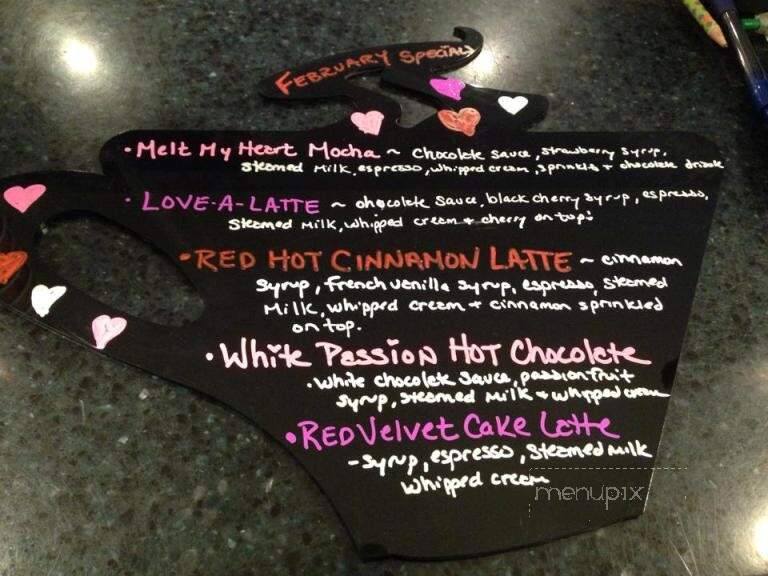 FEBRUARY SPECIALS
• Melt My Heart Mocha ~ Chocolate Sauce, Strawberry Syrup,
Steamed Milk, espresso, whipped cream, sprinkles + chocolate drizzle
• LOVE-A-LATTE ~ chocolate Sauce, black cherry syrup, espresso,
Steamed Milk, whipped cream + cherry on top!
• RED HOT CINNAMON LATTE ~ cinnamon
Syrup, French vanilla syrup, espresso, steamed
Milk, whipped cream + cinnamon sprinkled
on top.
• White Passion Hot Chocolate
• White chocolate sauce, passionfruit
Syrup, steamed Milk + whipped cream
• RED Velvet Cake Latte
- Syrup, espresso, steamed milk
whipped cream
menupix